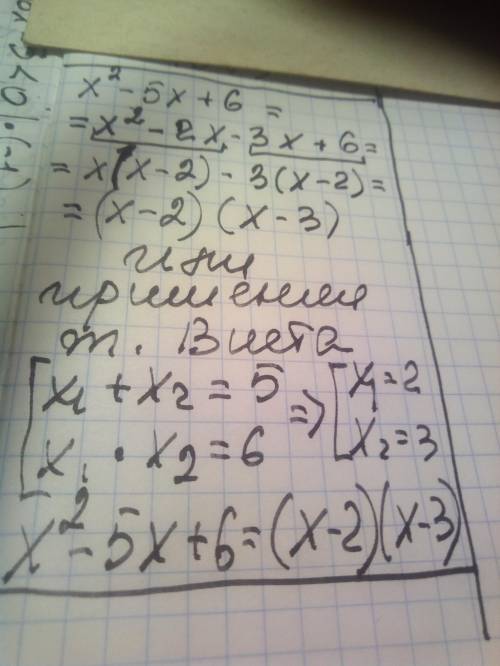 x² - 5x + 6 =
= x² - 2x - 3x + 6 =
= x(x-2) - 3(x-2) =
= (x-2) (x-3)
или
применим
т. Виета
[x₁ + x₂ = 5 => [x₁ = 2
x₁ · x₂ = 6 x₂ = 3
x² - 5x + 6 = (x-2)(x-3)